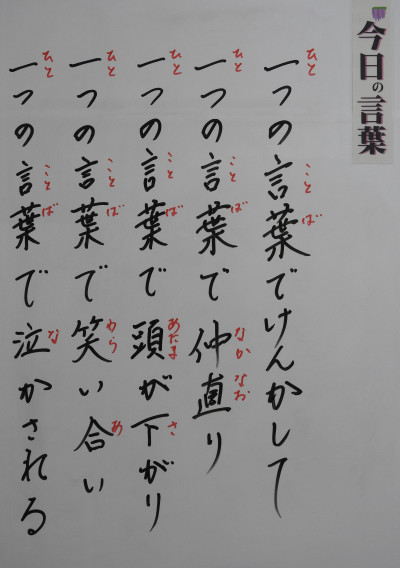 今日の言葉
一つの言葉でけんかして
一つの言葉で仲直り
一つの言葉で頭が下がり
一つの言葉で笑い合い
一つの言葉で泣かされる
ひと こと ば
ひと こと ば なか なお
ひと こと ば あたま さ
ひと こと ば わら あ
ひと こと ば な